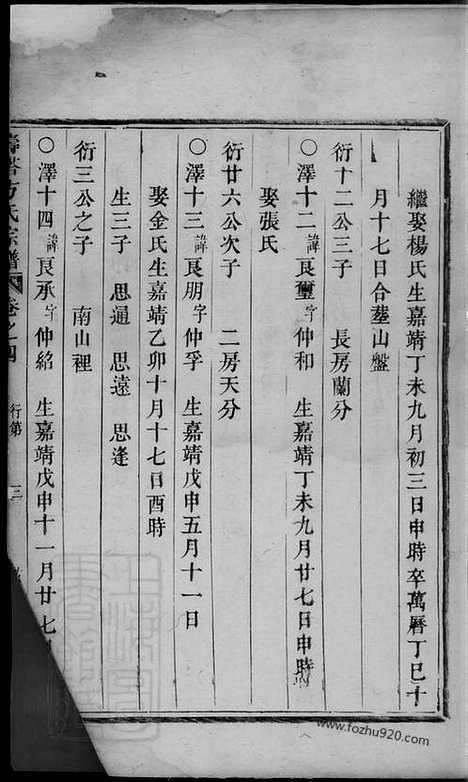 繼娶楊氏生嘉靖丁未九月初三日申時卒萬曆丁巳十
月十七日合塟山盤
衍十二公三子　長房蘭分
○澤十二諱良璽字仲和　生嘉靖丁未九月廿七日申時
娶張氏
衍廿六公次子　二房天分
○澤十三諱良朋字仲孚　生嘉靖戊申五月十一日
娶金氏生嘉靖乙卯十月十七日酉時
生三子　思通　思遠　思逢
衍三公之子　南山裡
○澤十四諱良承字仲紹　生嘉靖戊申十一月廿七
方氏宗譜　卷之四　行第　三
www.fozhu920.com